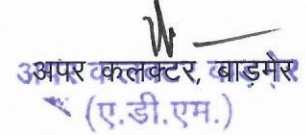 अपर कलक्टर, बाड़मेर
(ए.डी.एम.)